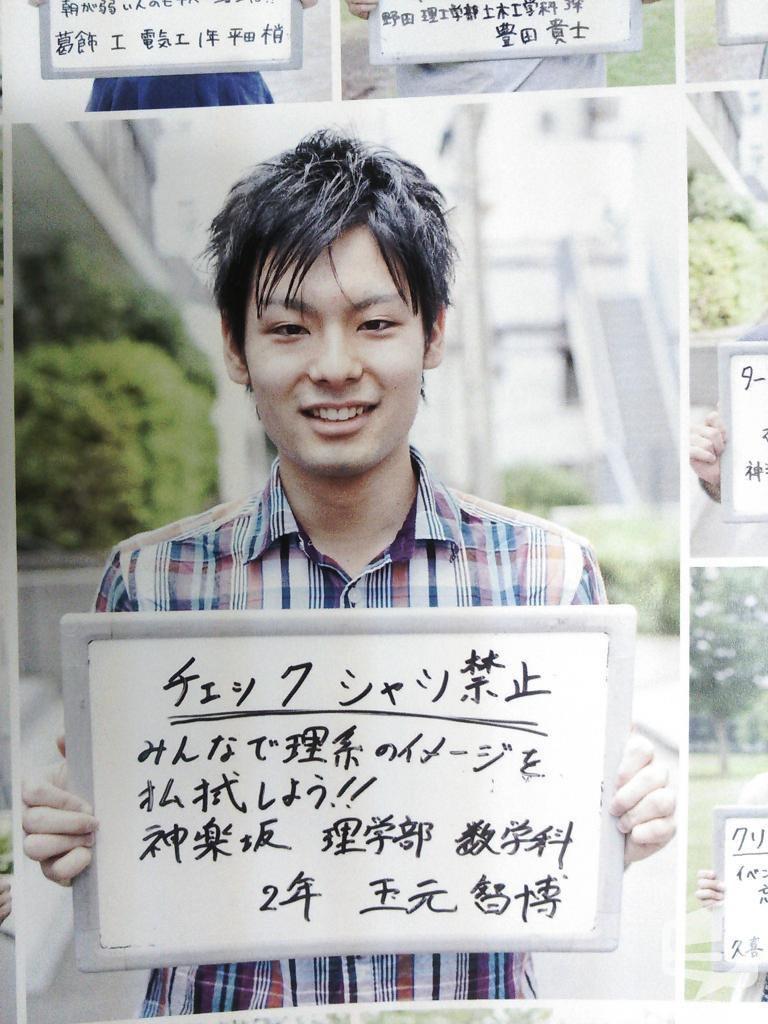 葛飾 工 電気工 1年 平田 梢
野田 理工学部 土木工学科 3年
豊田 貴士
チェックシャツ禁止
みんなで理系のイメージを
払拭しよう!!
神楽坂 理学部 数学科
2年 玉元 智博
ター
神
クリ
イベン
久喜